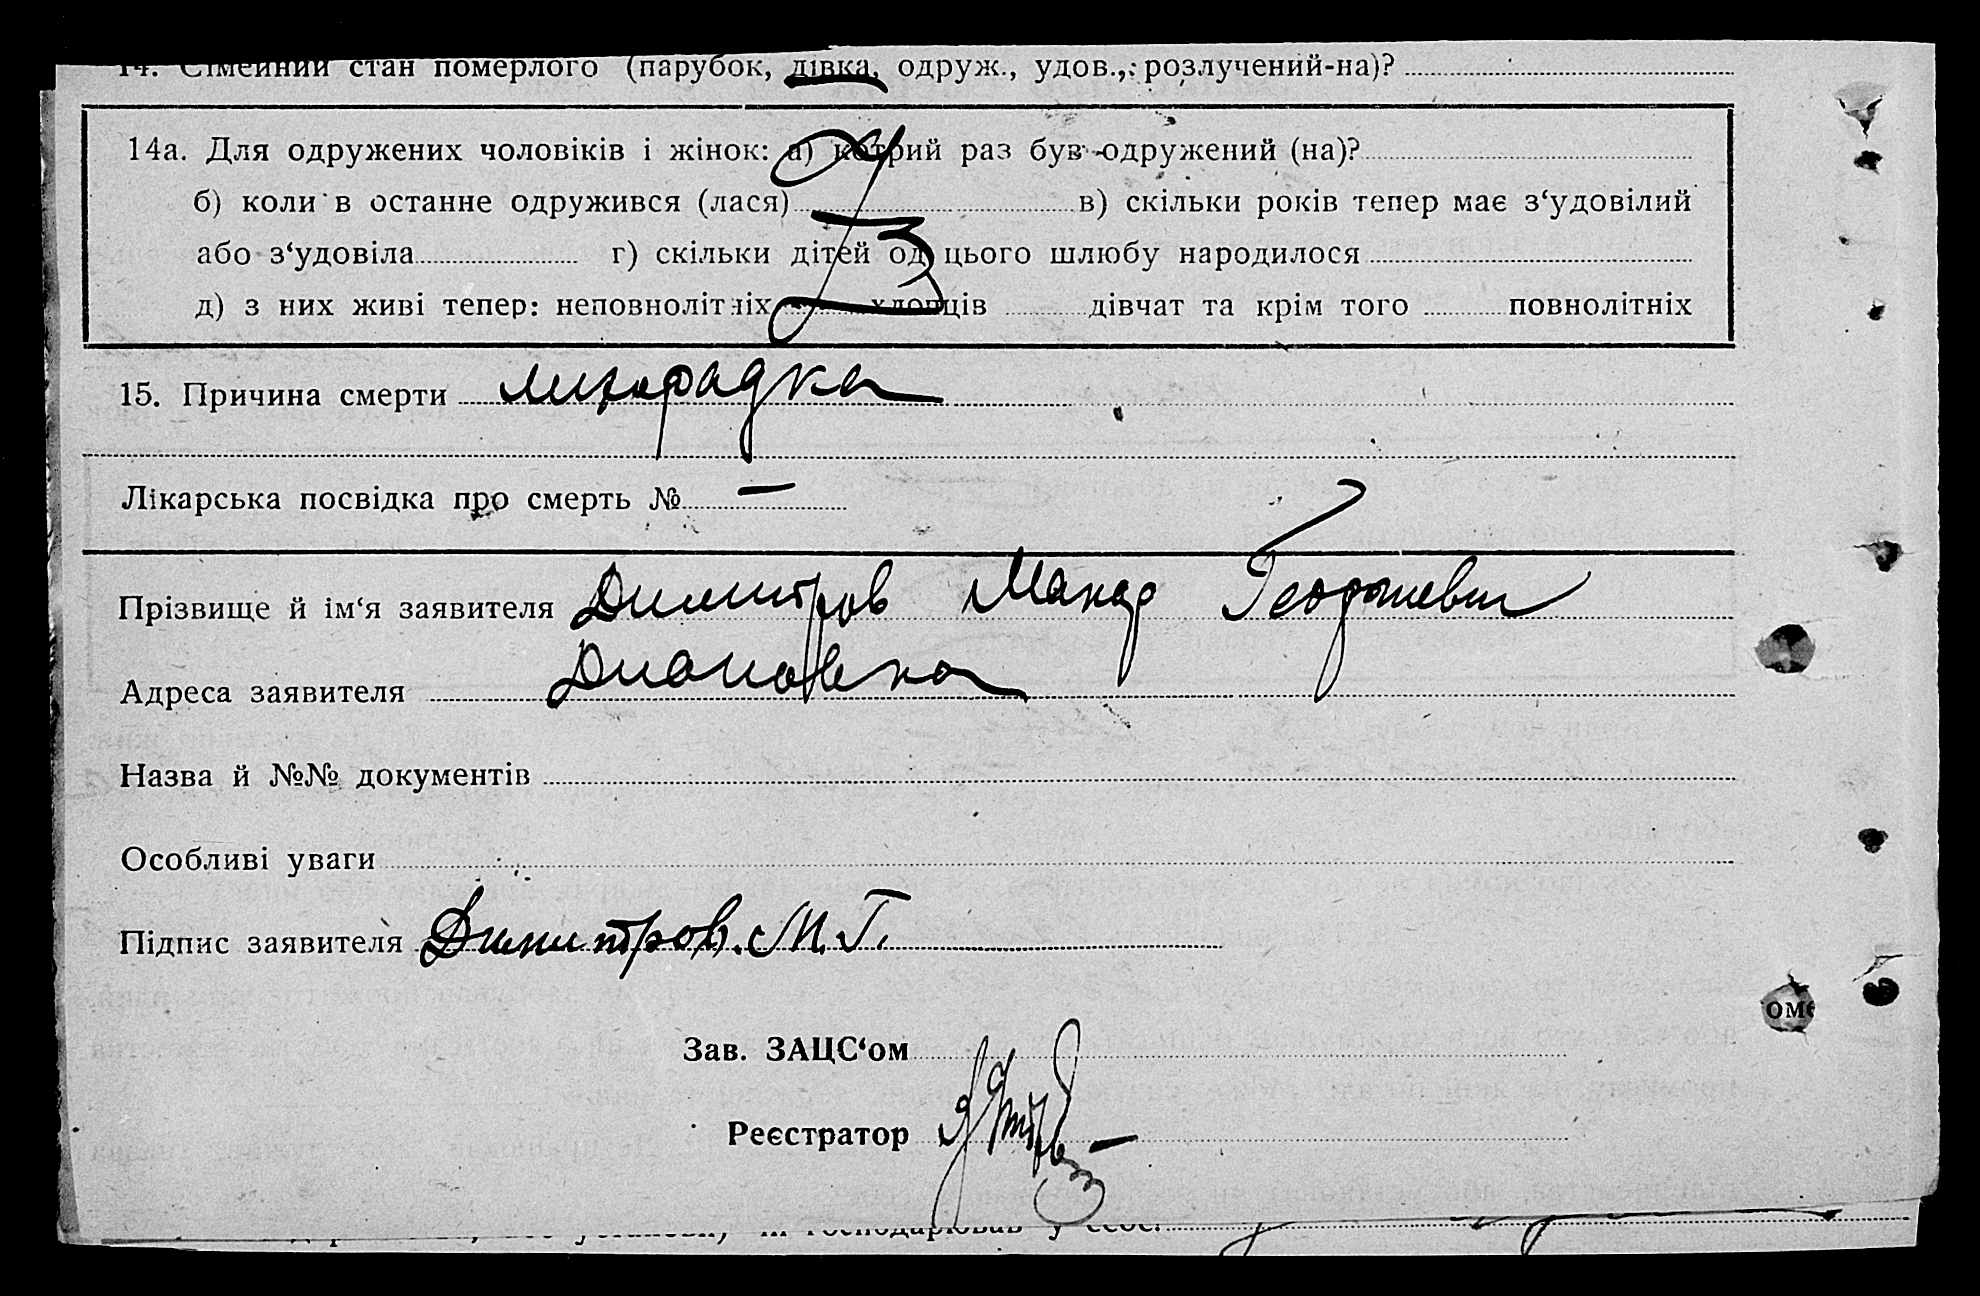 14. Сімейний стан померлого (парубок, дівка, одруж., удов., розлучений-на)?
14а. Для одружених чоловіків і жінок: а) котрий раз був одружений (на)?
б) коли в останне одружився (лася) в) скільки років тепер має з‘удовілий
або з‘удовіла г) скільки дітей од цього шлюбу народилося
д) з них живі тепер: неповнолітніх хлопців дівчат та крім того повнолітніх
15. Причина смерти лихорадка
Лікарська посвідка про смерть № —
Прізвище й ім‘я заявителя Димитров Макар Георгиевич
Адреса заявителя Диановка
Назва й №№ документів
Особливі уваги
Підпис заявителя Димитров. М. Г.
Зав. ЗАЦС‘ом
Реєстратор